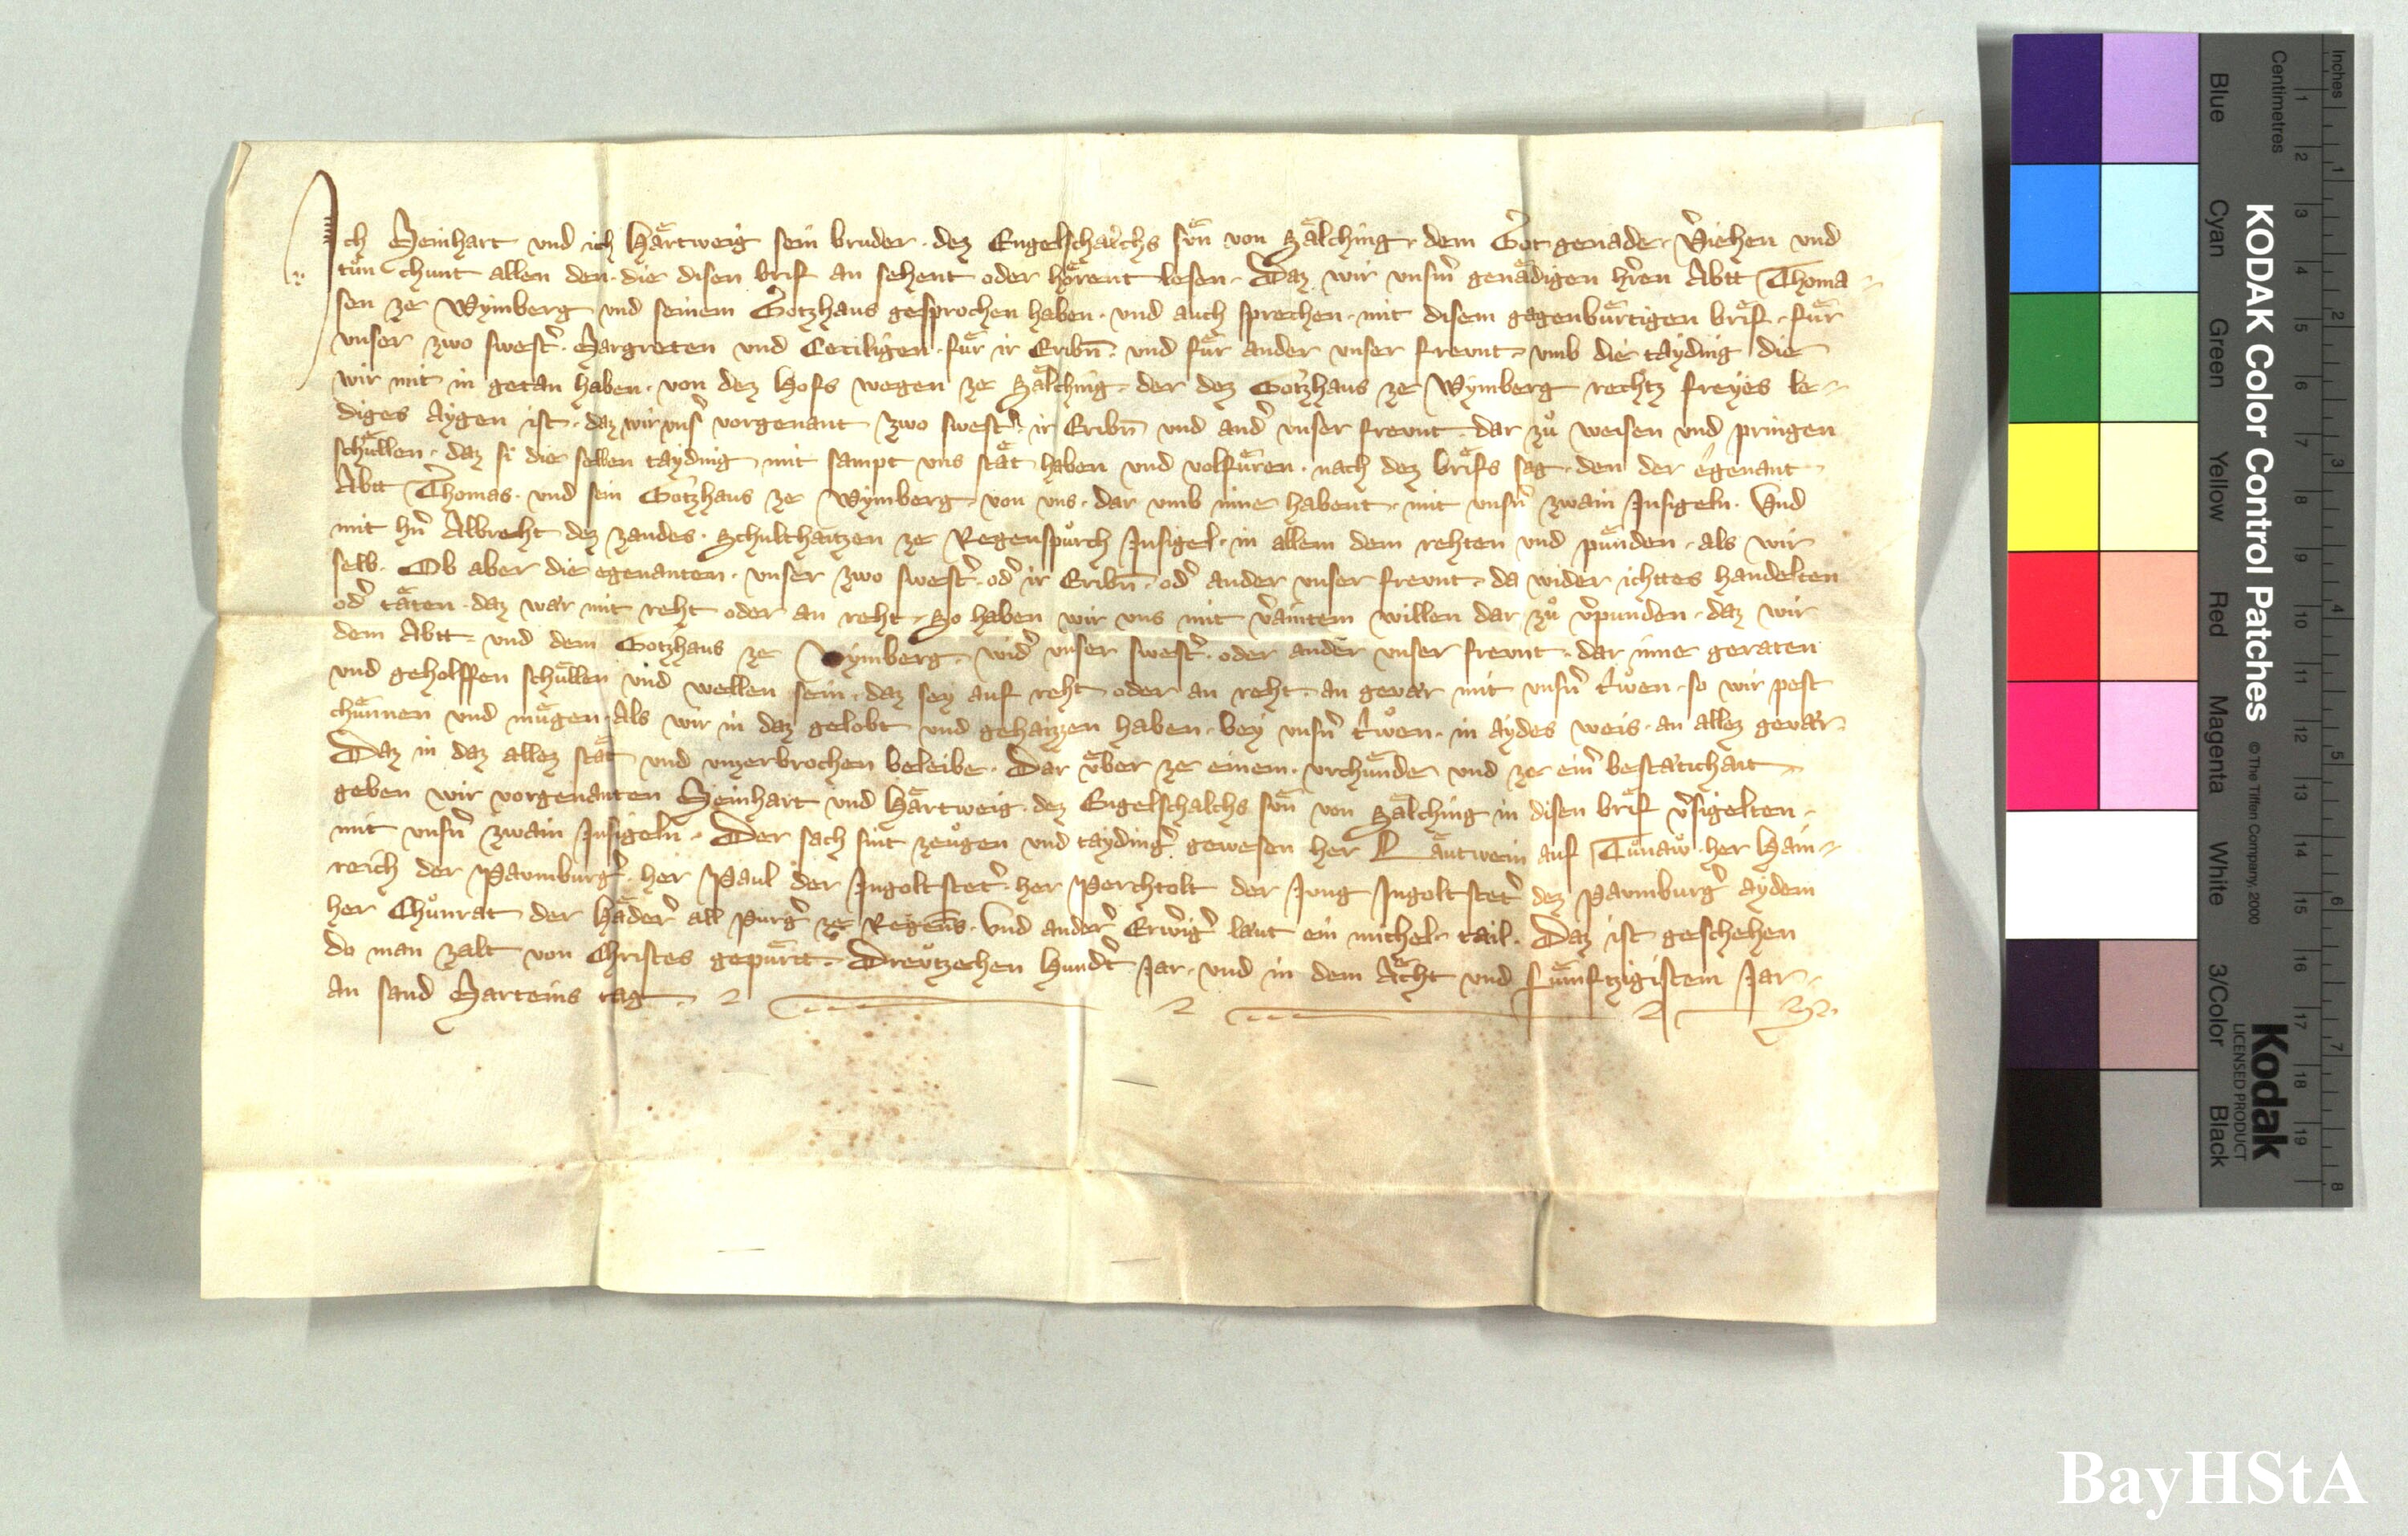 Ich Meinhart vnd ich Haͤrtweig sein bruder · dez Engelschalchs suͤn von Saͤlching · dem Got genade · v̾iehen vnd
tuͤn chunt allen den · die disen brif an sehent oder hoͤrent lesen · Daz wir vnsm̾ genaͤdigen hr̾en Abtt Thoma=
sen ze Wymberg vnd seinem Gotzhaus gesprochen haben · vnd auch sprechen · mit disem gagenbuͤrtigen brif · fuͤr
vnser zwo swest̾ · Margreten vnd Ceciligen · fuͤr ir Eribn̄ · vnd fuͤr ander vnser frevnt · vmb die tayding die
wir mit in getan haben · von dez Hofs wegen ze Saͤlching · der dez Gotzhaus ze Wymberg rechtz freyes le=
diges Aygen ist · daz wir vns̾ vorgenant zwo swest̾ · ir Eribn̄ vnd and̾ vnser frevnt · dar zuͦ weisen vnd pringen
schuͤllen · daz si die selben tayding mit sampt vns staͤt haben vnd volfuͤren · nach dez brifs sag · den der egenant
Abtt Thomas · vnd sein Gotzhaus ze Wymberg · von vns · dar vmb inne habent · mit vnsn̾ zwain Insigeln · Vnd
mit hn̾ Albrecht dez zandes · Schulthaitzen ze Regenspuͦrch Insigel · in allem dem rehten vnd puͤnden · als wir
selb · Ob aber die egenanten · vnser zwo swest̾ · od̾ ir Eribn̄ · od̾ ander vnser frevnt · da wider ichttes handelten
od̾ taͤten · daz waͤr mit reht oder an reht · So haben wir vns mit v̾aintem willen dar zuͦ v̾punden · daz wir
dem Abtt · vnd dem Gotzhaus ze Wymberg · wid̾ vnser swest̾ · oder ander vnser frevnt · dar inne geraten
vnd geholffen schuͤllen vnd wellen sein · daz sey auf reht oder an reht · an gevaͤr mit vnsn̾ trwͤen · so wir pest
chuͤnnen vnd muͤgen · Als wir in daz gelobt vnd gehaizzen haben · bey vnsn̾ trwͤen · in Aydes weis · an allez gevaͤr ·
Daz in daz allez staͤt vnd vnzerbrochen beleibe · Dar vͤber ze einem · vrchuͤnde vnd ze ein̾ bestaͤtichait
geben wir vorgenanten Meinhart vnd Haͤrtweig · dez Engelschalchs suͤn von Saͤlching in disen brif v̾sigelten ·
mit vnsn̾ zwain Insigeln · Der sach sint zeuͦgen vnd tayding̾ gewesen her Laͤutwein auf Tuͦnaw · her Hain=
reich der Pavmburg̾ · her Paul der Ingoltstet̾ · her Perchtolt der Jung Ingoltstet̾ dez Pavmburg̾ aydem
her Chuͦnrat der Haͤder̾ all purg̾ ze Regens · Vnd ander̾ Erw̾ig̾ laͤut ein michel tail · Daz ist geschehen
do man zalt von Christes gepuͤrtt · Dreuͦtzechen Hund̾t Jar · vnd in dem Aͤcht vnd fuͤmftzigistem Jar ·
an sand Marteins tag ·
KODAK Color Control Patches
© The Tiffen Company, 2000
Kodak
LICENSED PRODUCT
Inches 1 2 3 4 5 6 7 8
Centimetres 1 2 3 4 5 6 7 8 9 10 11 12 13 14 15 16 17 18 19
Blue Cyan Green Yellow Red Magenta White 3/Color Black
BayHStA